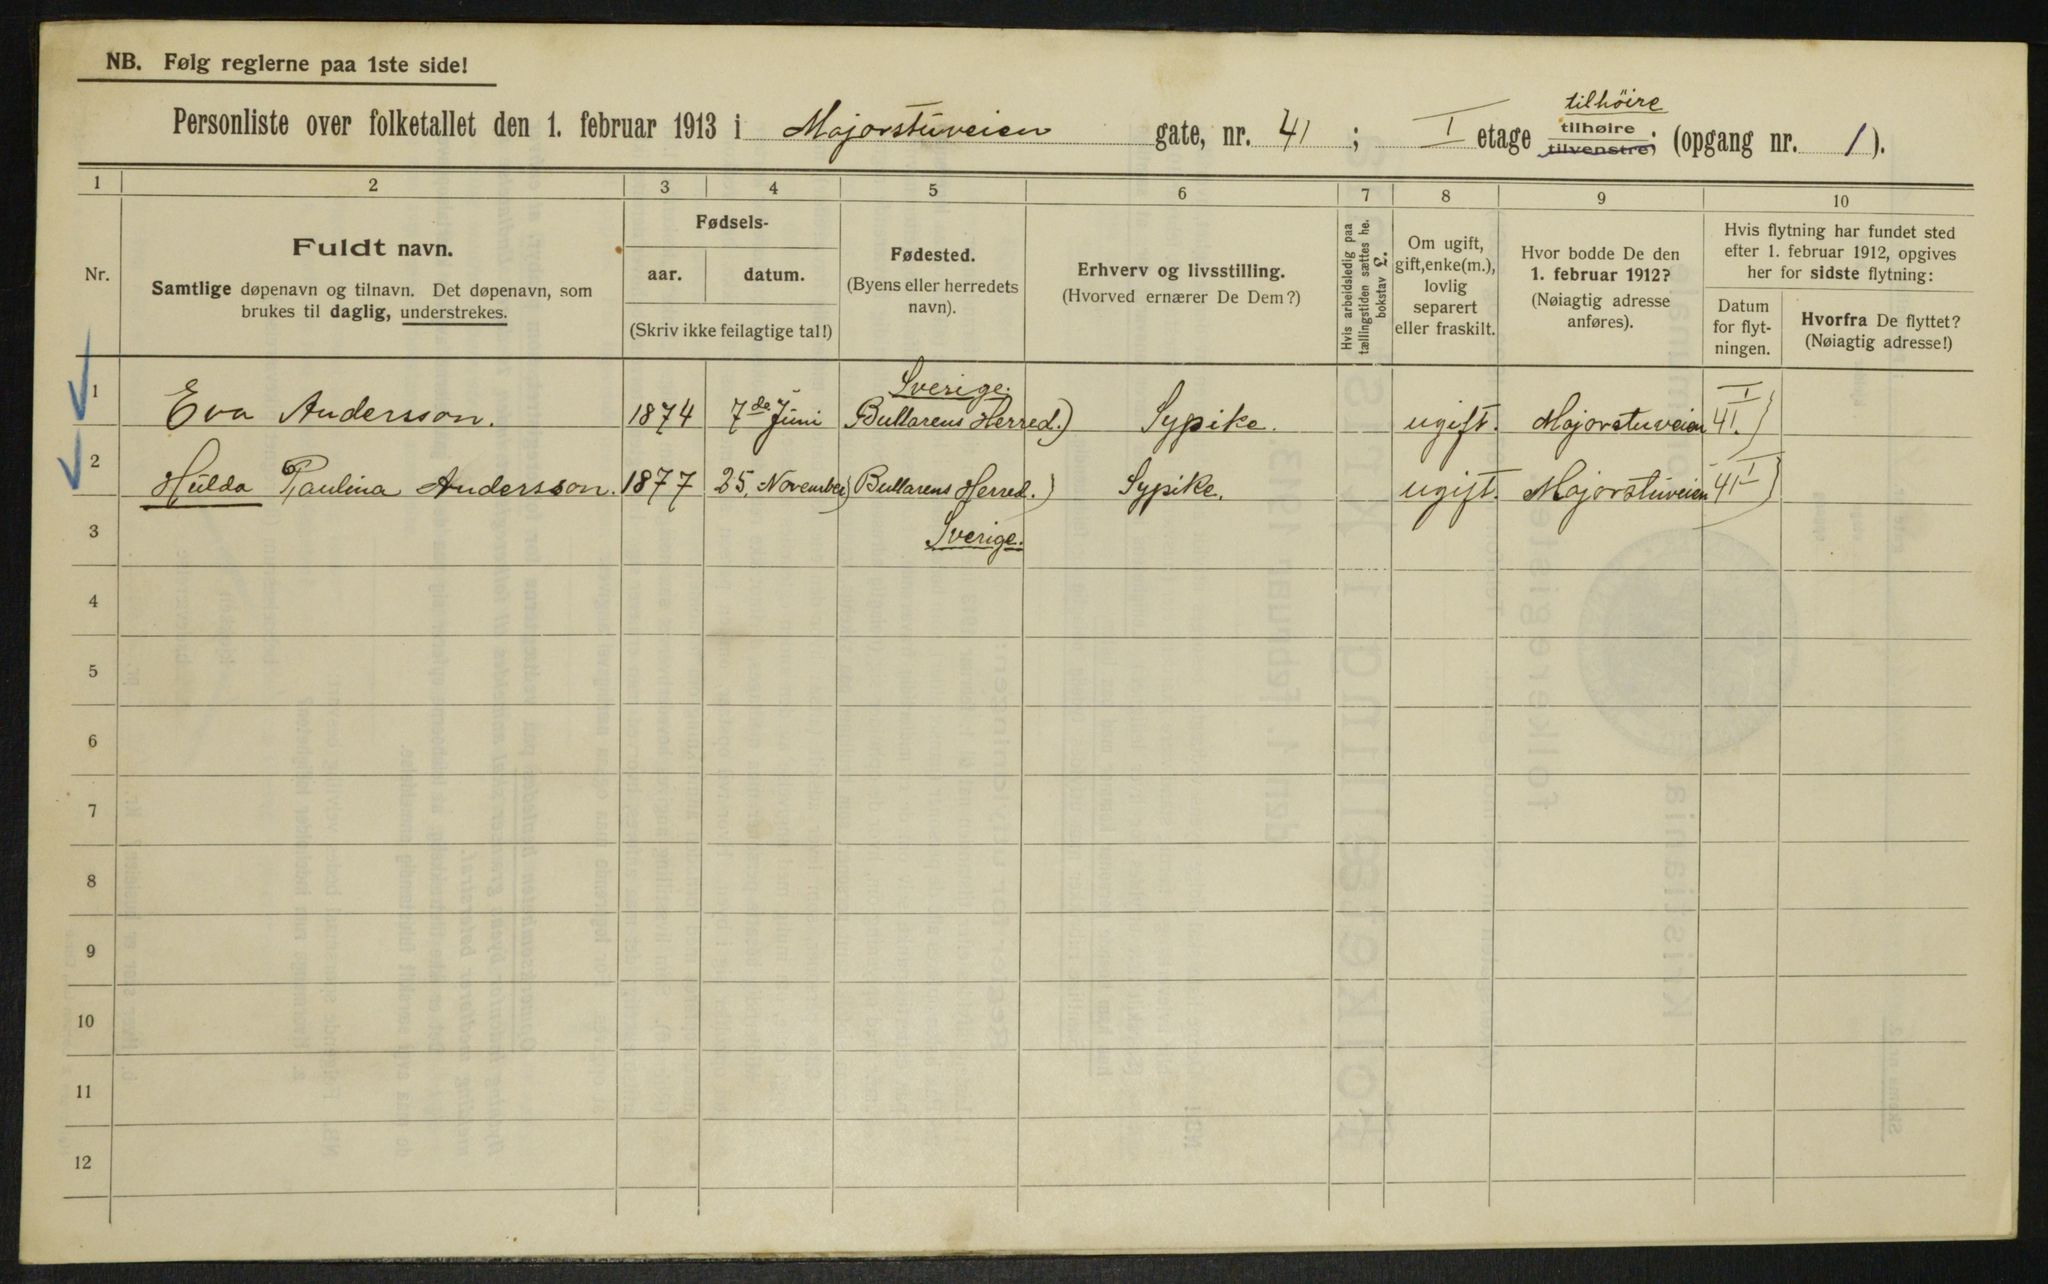 NB. Følg reglerne paa 1ste side!
tilhöire
Personliste over folketallet den 1. februar 1913 i Majorstuveien gate, nr. 41 ; I etage tilhøire tilvenstre; (opgang nr. 1).
1 2 3 4 5 6 7 8 9 10
Nr.
Fuldt navn.
Samtlige døpenavn og tilnavn. Det døpenavn, som
brukes til daglig, understrekes.
Fødsels-
aar. datum.
(Skriv ikke feilagtige tal!)
Fødested.
(Byens eller herredets
navn).
Erhverv og livsstilling.
(Hvorved ernærer De Dem?)
Hvis arbeidsledig paa
tællingstiden sættes he.
bokstav L.
Om ugift,
gift, enke(m.),
lovlig
separert
eller fraskilt.
Hvor bodde De den
1. februar 1912?
(Nøiagtig adresse
anføres).
Hvis flytning har fundet sted
efter 1. februar 1912, opgives
her for sidste flytning:
Datum
for flyt-
ningen.
Hvorfra De flyttet?
(Nøiagtig adresse!)
Sverige.
1 Eva Andersson. 1874 7de Juni Bullarens Herred.) Sypike. ugift. Majorstuveien 41 I.)
2 Hulda Paulina Andersson. 1877 25. November) Bullarens Herred.) Sypike. ugift. Majorstuveien 41 I)
3 Sverige.
4
5
6
7
8
9
10
11
12